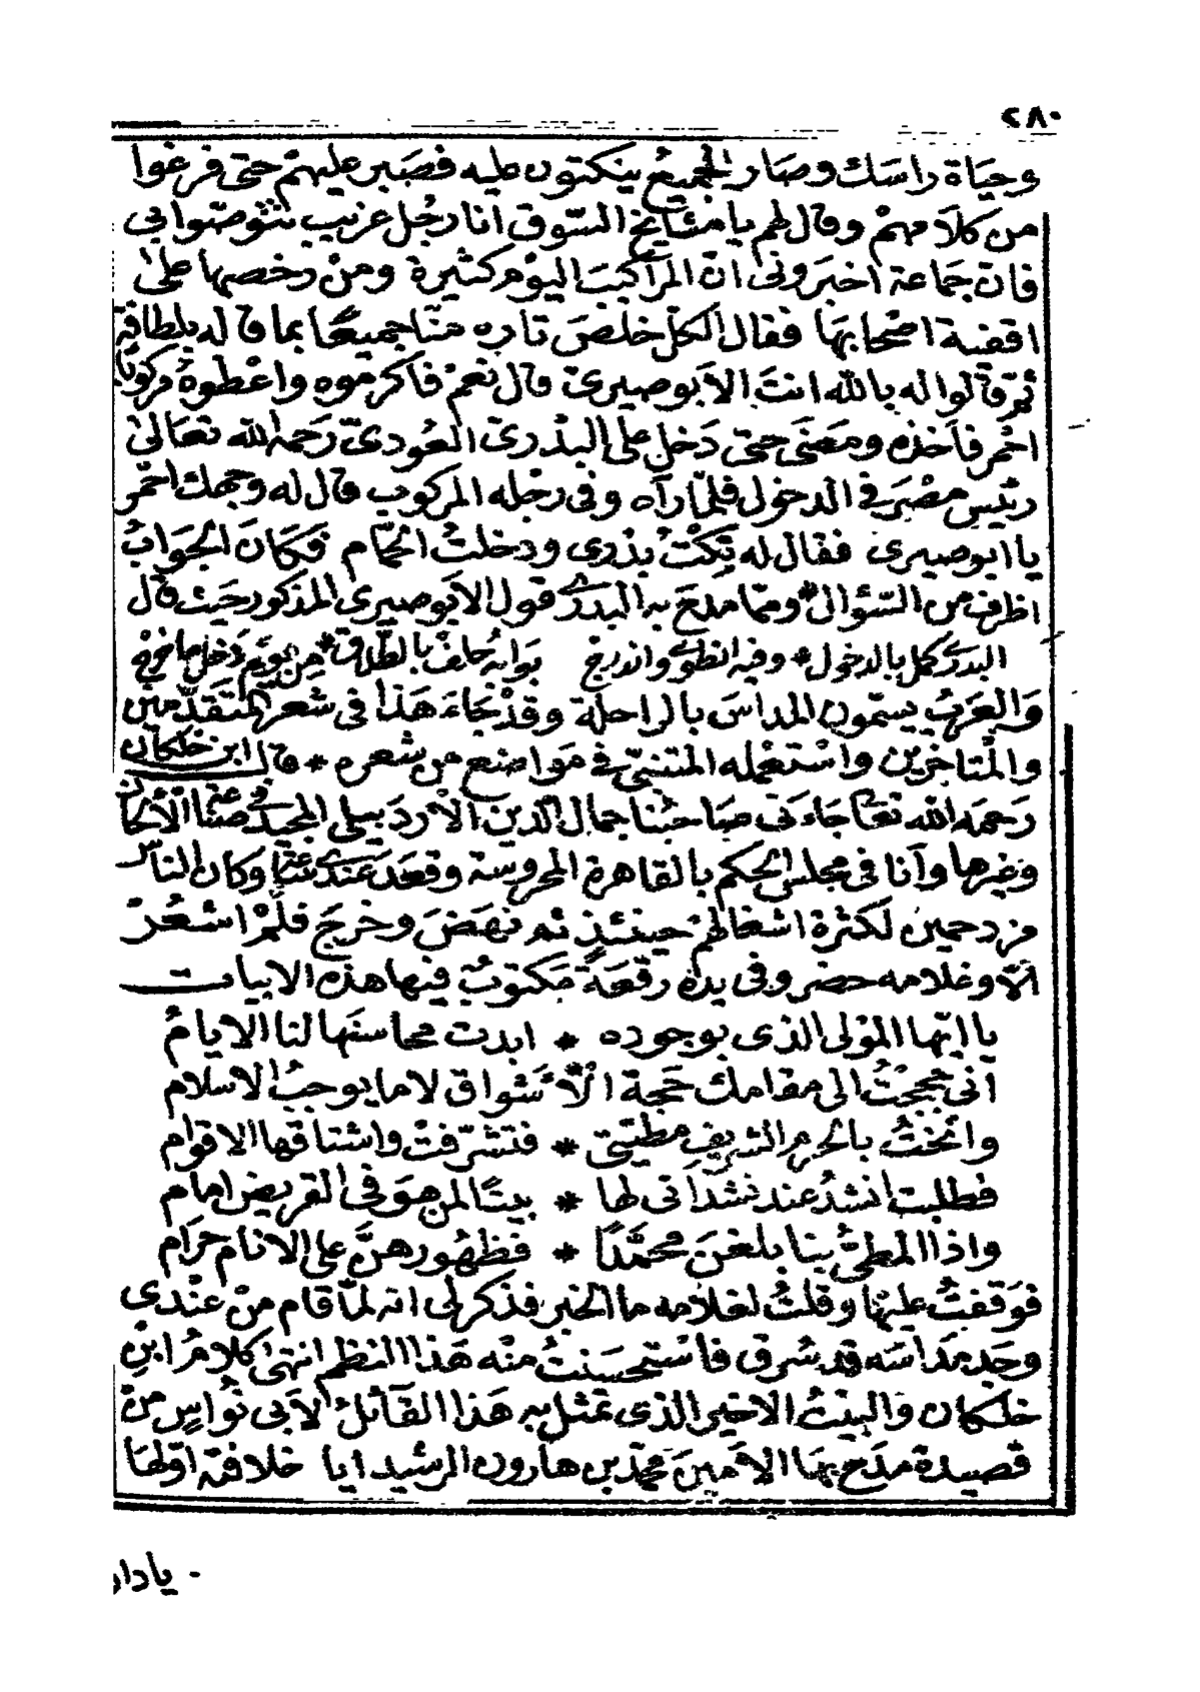 ٢٨٠
وحيَاة راسَك وصَار الجميعُ ينكتون عليه فصَبر عليهمْ حتى فرغوا
من كلاَمهمْ وقال لهم يا مشَايخ السّوق انا رجُل غريب تتوصّوا بى
فان جَماعة اخبَرونى ان المرَاكبَ اليوْم كثيرة ومنْ رخصها على
اقفية اصْحابهَا فقال الكلّ خلصَ تاره منّا جميعًا بما قال له بلطافة
ثمّ قالوا له بالله انتَ الاَبوصيرىّ قال نعَمْ فاكرموه واعْطوهُ مركوبًا
احْمر فاَخذه ومَضَى حتى دَخل على البدْرىّ العُودىّ رَحمه الله تعَالىٰ
رئيس مصْرَ فى الدخول فلمّا رآه وفى رجْله المركوب قال له وجهك احْمر
يا ابوصيرى فقال له نِكْتُ بذرى ودخلتُ الحمّام فكَانَ الجوَابُ
اظرف من السّؤال * ومّما مدحَ به البدرى قول الاَبوصيرى المذكور حَيث قال
البدرى كمل بالدخول * وفيه انطوى واندرج بوابه حَالف بالطّلاق * من يوم دَخل ما خرج
وَالعَربُ يسَمّون المدَاسَ بالراحلَة وقدْ جَاءَ هَذا فى شعر المتقدّمين
والمتَاخّرين واسْتعْمله المتنبّى فى مَواضع من شعره * قال ابن خلكان
رَحمَه الله تعَالى جَاءَنى صَاحبُنا جمال الدّين الاَردَبيلى المجيد فى صنْعَة الاَلحَان
وغيرها وَاَنا فى مجلس الحكم بالقَاهرة المحروسَة وقعَدَ عندى سَاعَة وكان الناس
مزدحمين لكثرة اشغالهمْ حينئذٍ ثم نهَضَ وخرَجَ فلمْ اشعُرْ
الاّ وغلامه حضر وفى يده رقعَة مَكتوبٌ فيها هذه الابيات
يا ايّها المَوْلى الذى بوجوده * ابدت محاسنَها لنا الايامُ
انى حججْتُ الى مقامك حَجة الاَشواق لا ما يوجبُ الاسلام
وانختُ بالحرم الشريفِ مطيّتى * فتشرّفتْ واشتاقها الاقوام
فطلبت انشدُ عند نشدَانى لها * بيتًا لمن هوَ فى القريض امام
واذا المطىّ بنا بلغنَ محمّدًا * فظهُورهنَّ على الانام حرَام
فوَقفتُ عليهَا وقلتُ لغلاَمه ما الخبر فذكر لى انه لمّا قام منْ عنْدى
وجَد مدَاسَه قد سُرق فاسْتحسَنتُ منْه هَذا النظم انتهىٰ كلامُ ابن
خلكان وَالبيْتُ الاخير الذى تمثل به هَذا القَائل لاَبى نُواسٍ منْ
قصيدة مَدَح بهَا الاَمينَ محمّد بن هارون الرشيد ايام خلافته اوّلهَا
يادار